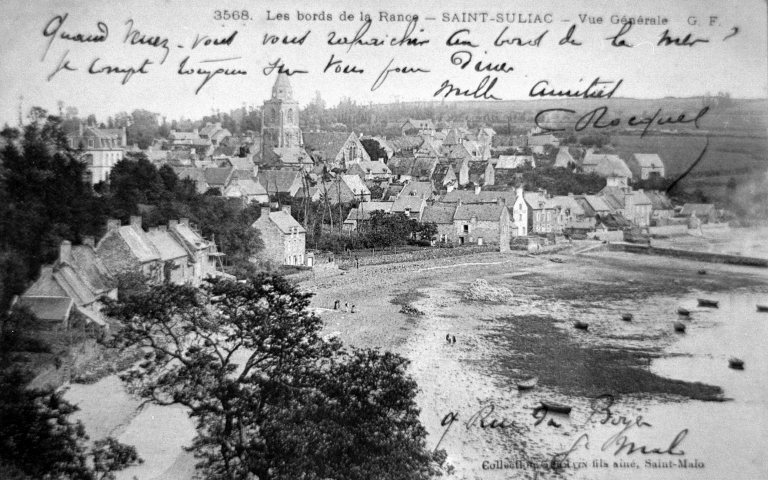 3568. Les bords de la Rance — SAINT-SULIAC — Vue Générale G. F.
Quand venez-vous vous rafraichir au bord de la mer ?
Je compt toujours sur vous pour Diner
Mille Amitiés
C Rocquel
9 Rue du Boyer
St Malo
Collection fils aîné, Saint-Malo